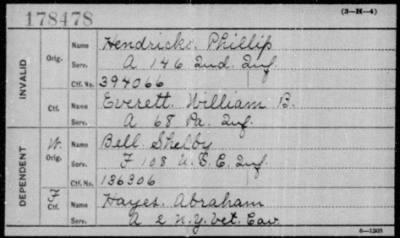 178478
(3—H—4)
INVALID
Orig.
Name Hendricks. Phillip
Serv. A 146 Ind. Inf.
Ctf. No. 394066
Ctf.
Name Everett. William B.
Serv. A 68 Pa. Inf.
DEPENDENT
W.
Orig.
Name Bell Shelby
Serv. F 108 U.S.C. Inf.
Ctf. No. 136306
Ctf.
Name Hayes. Abraham
Serv. A 2 N.Y. Vet. Cav
6—1303